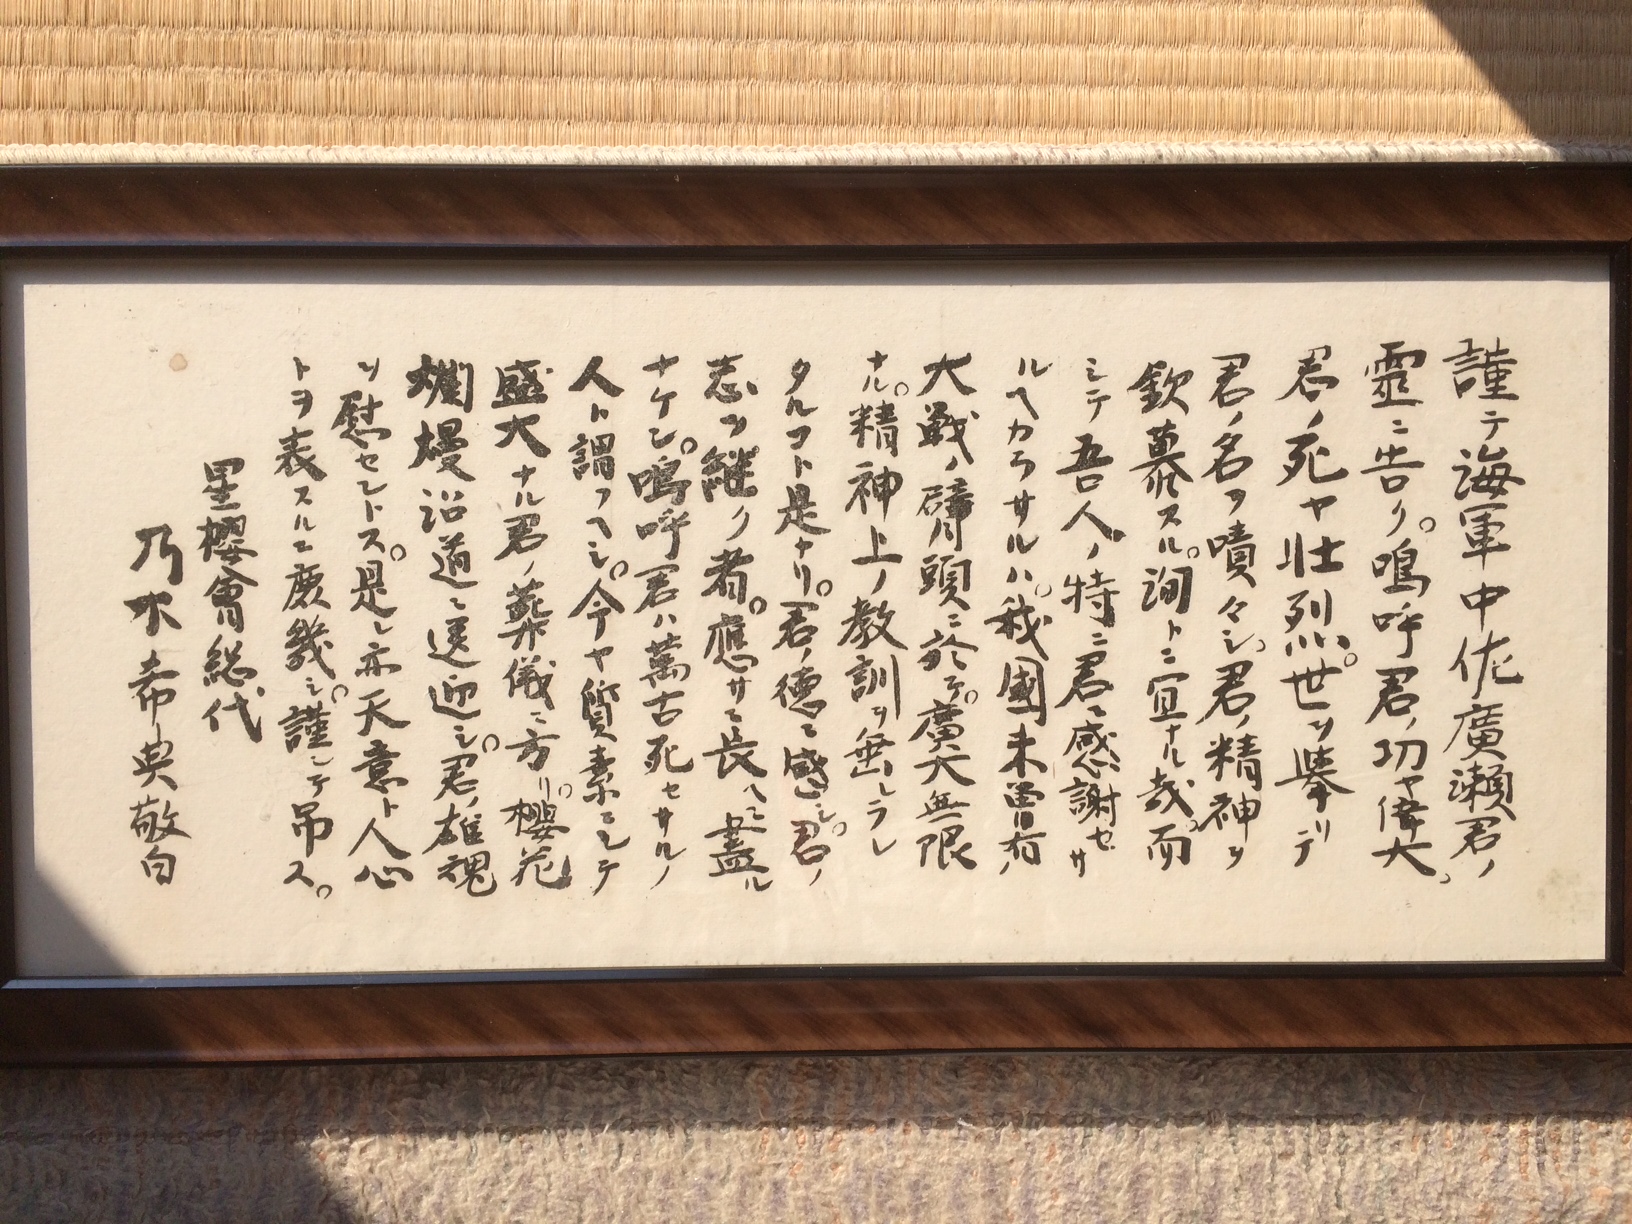 謹テ海軍中佐廣瀬君ノ
靈ニ告ク。嗚呼君ノ功ヤ偉大、
君ノ死ヤ壮烈。世ヲ擧リテ
君ノ名ヲ嘖々シ。君ノ精神ヲ
欽慕スル。洵トニ宜ナル哉。而
シテ吾人ノ特ニ君ニ感謝セサ
ルヘカラサルハ。我國未曽有ノ
大戦ノ劈頭ニ於テ。廣大無限
ナル。精神上ノ教訓ヲ垂レラレ
タルコト是ナリ。君ノ徳ニ感シ。君ノ
志ヲ継ク者。應サニ長ヘニ盡ル
ナケン。嗚呼君ハ萬古死セサルノ
人ト謂フヘシ。今ヤ質素ニシテ
盛大ナル君ノ葬儀ニ方リ。櫻花
爛熳沿道ニ送迎シ。君ノ雄魂
ヲ慰セントス。是レ亦天意ト人心
トヲ表スルニ庶幾シ。謹ンテ吊ス。
星櫻會総代
乃木希典敬白